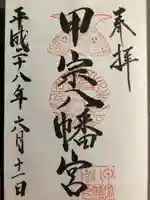 奉拝
甲宗八幡宮
平成二十八年六月十一日